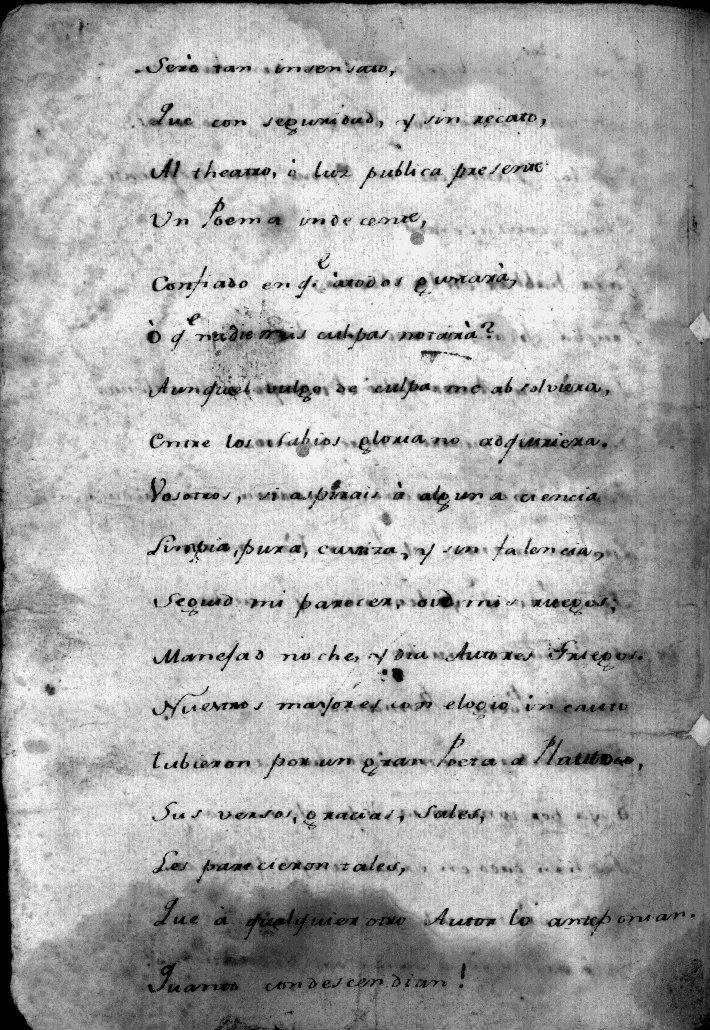 Serè tan insensato,
Que con seguridad, y sin recato,
Al theatro, ò luz publica presente
Un Poema indecente,
Confiado en qe àtodos gustarà,
Ò qe nadie mis culpas notarà?
Aunque el vulgo de culpa me absolviera,
Entre los Sabios gloria no adquiriera.
Vosotros, si aspirais à alguna ciencia
Limpia, pura, castiza, y sin falencia,
Seguid mi parecer, oid mis ruegos;
Manejad noche, y dia Autores Griegos.
Nuestros mayores con elogio incauto
tubieron por un gran Poeta a Plauto,
Sus versos, gracias, Sales,
Les parecieron tales,
Que à qualquier otro Autor lo anteponian.
Quanto condescendian!